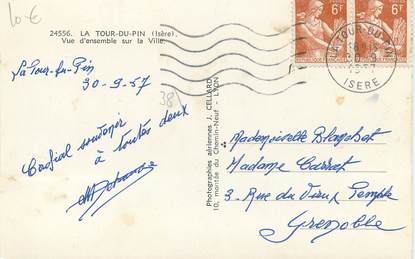 10 €
24556. LA TOUR-DU-PIN (Isère).
Vue d'ensemble sur la Ville.
La Tour-du-Pin
30-9-57
38
Cordial souvenir
à toutes deux
Photographies aériennes J. CELLARD
10, montée du Chemin-Neuf - LYON
6F
6F
LA TOUR-DU-PIN
ISERE
Mademoiselle Blanchet
Madame
3 Rue du Vieux Temple
Grenoble